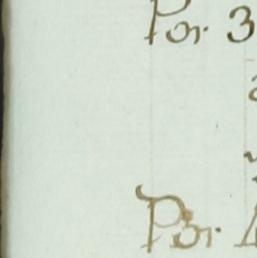 Por 3
Por